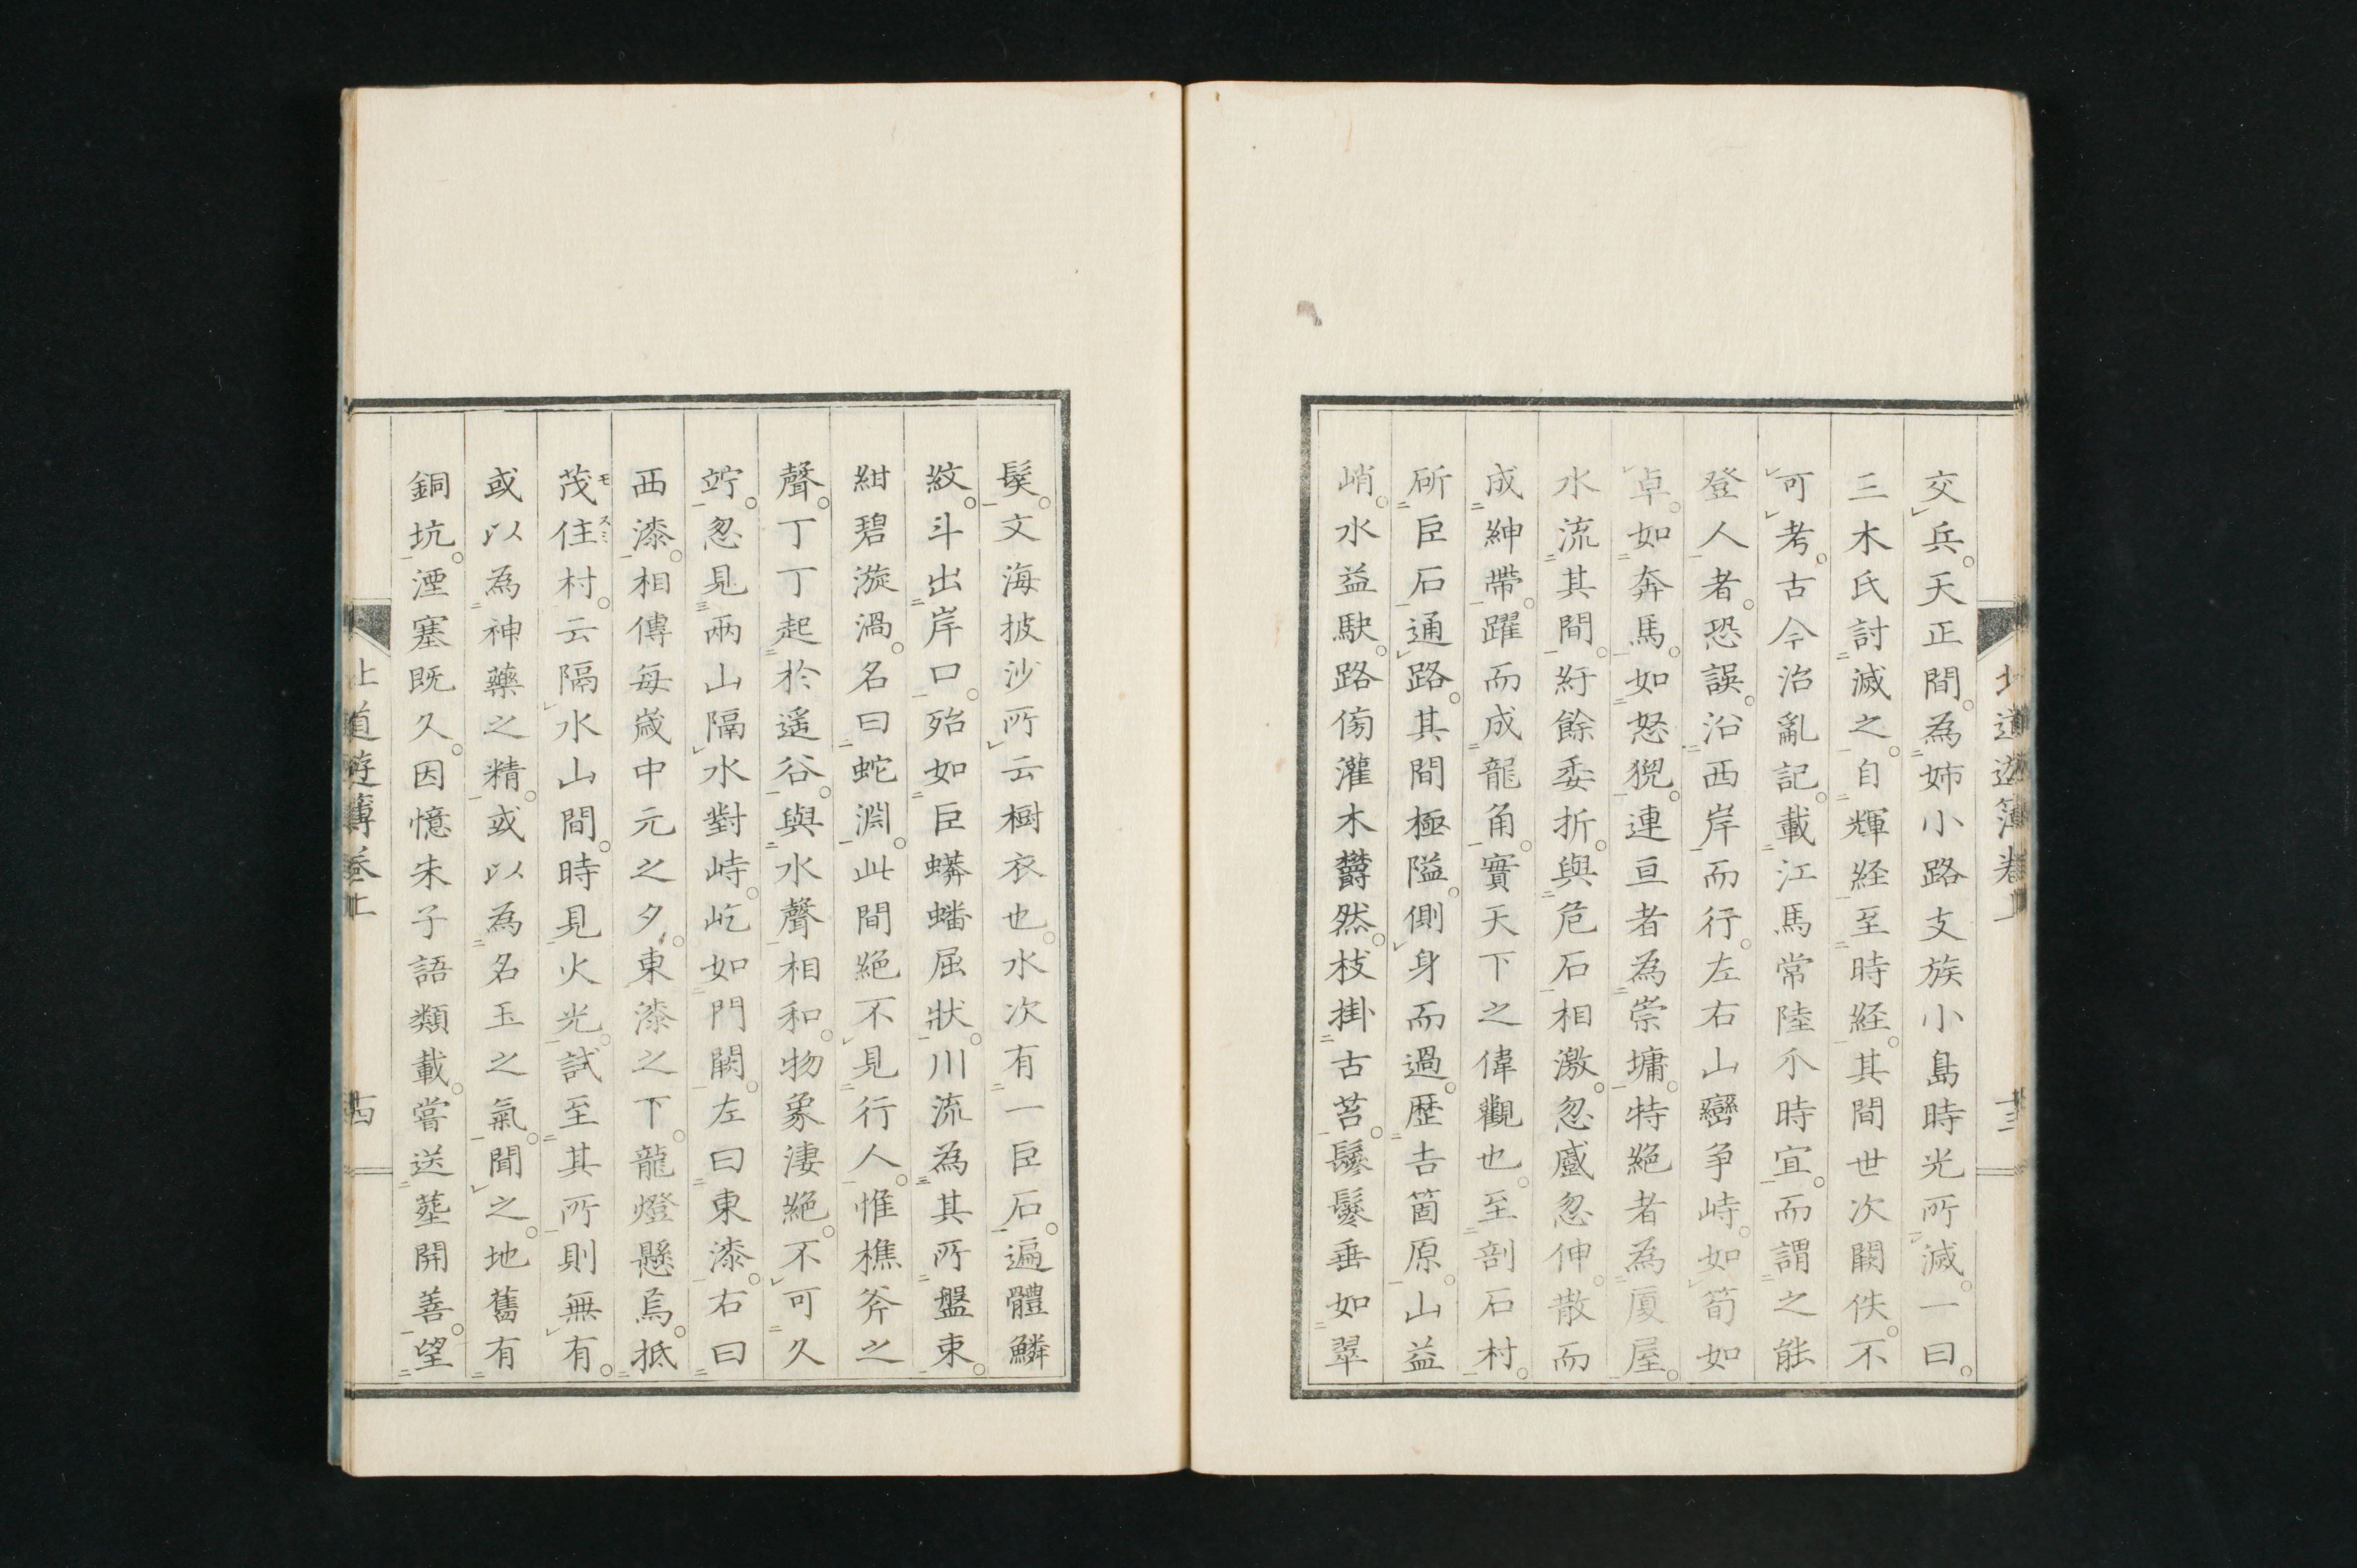 交兵。天正間。為姉小路支族小島時光所滅。一曰。
三木氏討滅之。自輝経至時経。其間世次闕佚。不
可考。古今治亂記。載江馬常陸介時宜。而謂之能
登人者。恐誤。沿西岸而行。左右山巒争峙。如筍如
卓。如奔馬。如怒猊。連亘者為崇墉。特絶者為厦屋。
水流其間。紆餘委折。與危石相激。忽蹙忽伸。散而
成紳帶。躍而成龍角。實天下之偉觀也。至剖石村。
斫巨石通路。其間極隘。側身而過。歷吉箇原。山益
峭。水益駛。路傍灌木欝然。枝掛古苔。鬖鬖垂如翠
北道遊簿卷上 十三
髮。文海披沙所云樹衣也。水次有一巨石。遍體鱗
紋。斗出岸口。殆如巨蟒蟠屈狀。川流為其所盤束。
紺碧漩渦。名曰蛇淵。此間絶不見行人。惟樵斧之
聲。丁丁起於遥谷。與水聲相和。物象淒絶。不可久
竚。忽見兩山隔水對峙。屹如門闕。左曰東漆。右曰
西漆。相傳每歳中元之夕。東漆之下。龍燈懸焉。抵
茂住村。云隔水山間。時見火光。試至其所則無有。
モ スミ
或以為神藥之精。或以為名玉之氣。聞之。地舊有
銅坑。湮塞既久。因憶朱子語類載。嘗送葬開善。望
北道遊簿卷上 十四